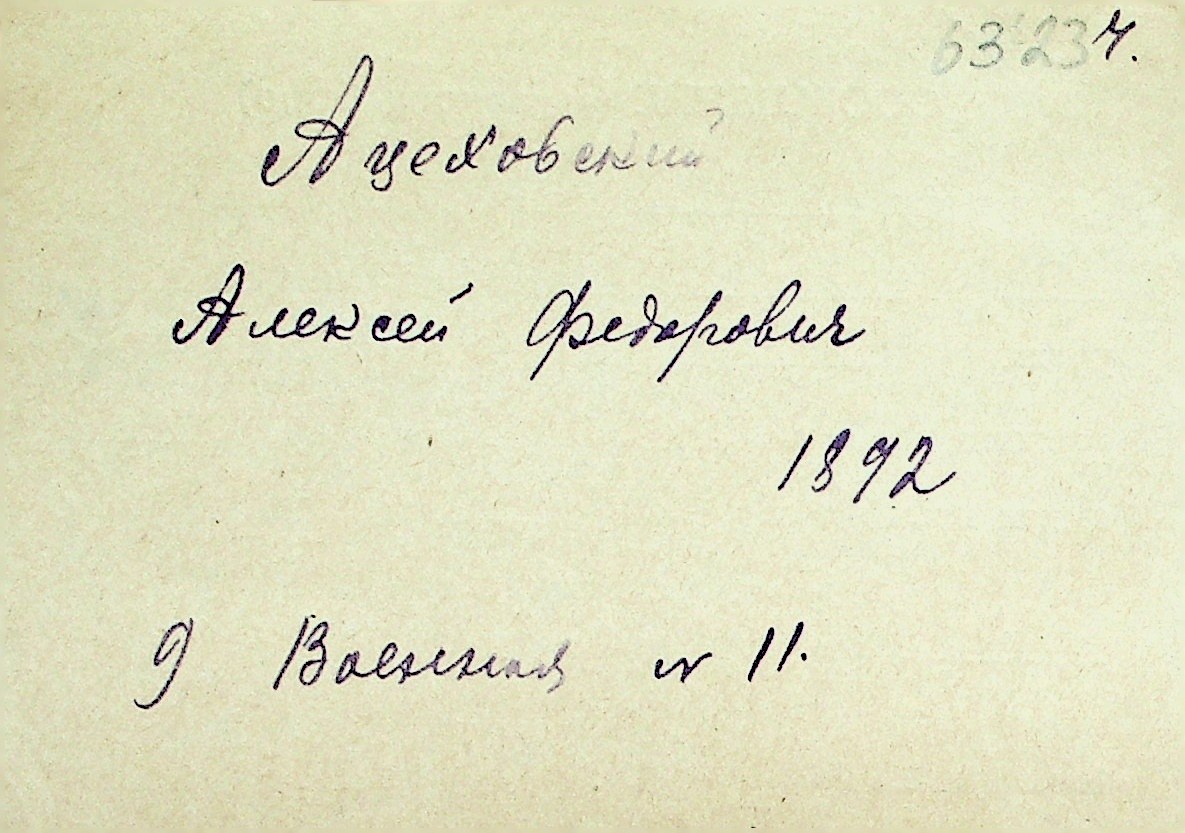 63234.
Ацеховский
Алексей Федорович
1892
9 Военная № 11.